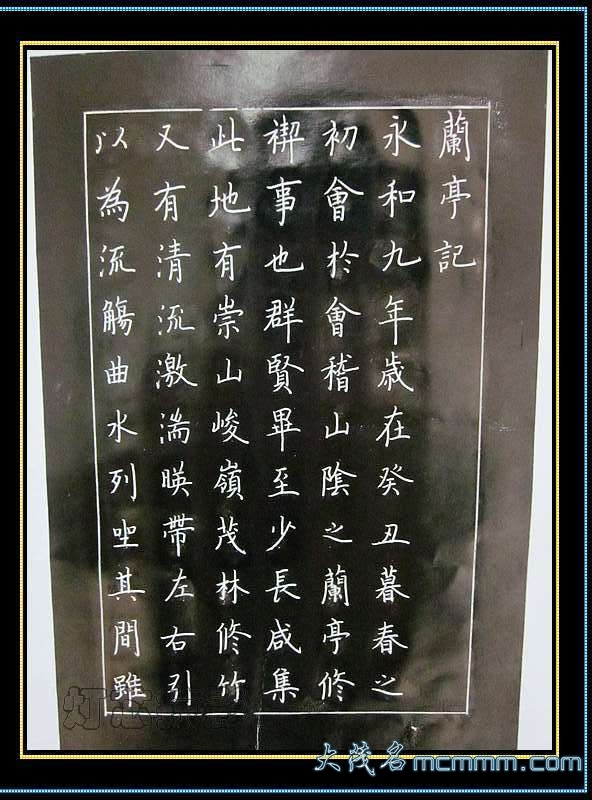 蘭亭記
永和九年歲在癸丑暮春之
初會於會稽山陰之蘭亭修
禊事也群賢畢至少長咸集
此地有崇山峻嶺茂林修竹
又有清流激湍暎帶左右引
以為流觴曲水列坐其間雖
大茂名mcmmm.com